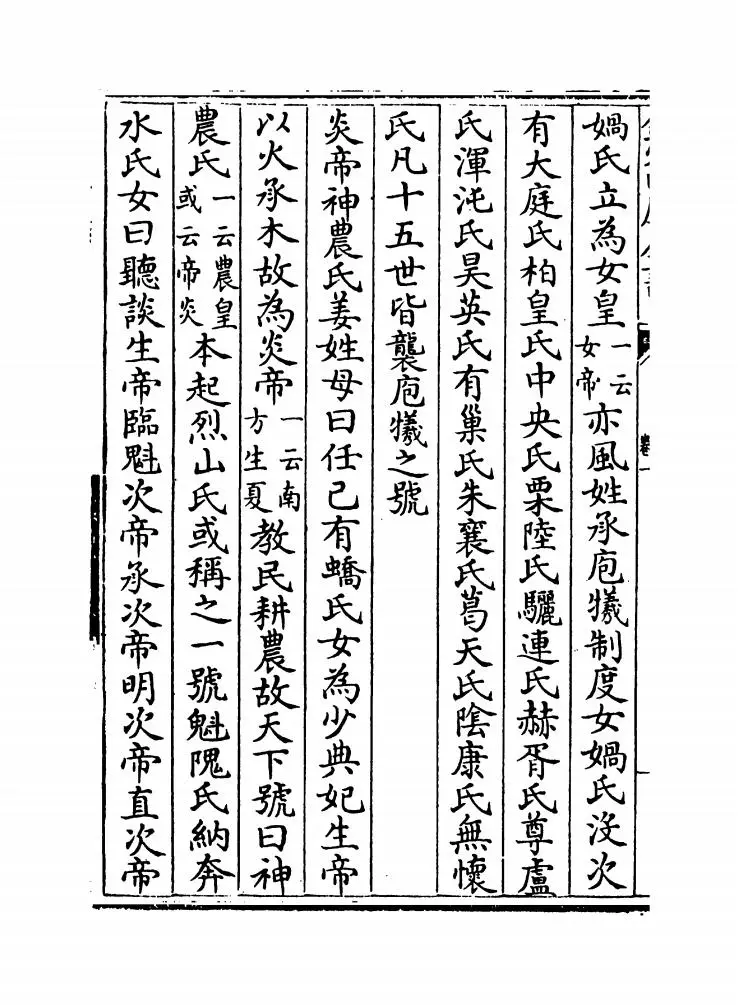 媧氏立為女皇一云女帝亦風姓承庖犧制度女媧氏沒次
有大庭氏柏皇氏中央氏栗陸氏驪連氏赫胥氏尊盧
氏渾沌氏昊英氏有巢氏朱襄氏葛天氏陰康氏無懷
氏凡十五世皆襲庖犧之號
炎帝神農氏姜姓母曰任己有蟜氏女為少典妃生帝
以火承木故為炎帝一云南方生夏教民耕農故天下號曰神
農氏一云農皇或云帝炎本起烈山氏或稱之一號魁隗氏納奔
水氏女曰聽談生帝臨魁次帝承次帝明次帝直次帝